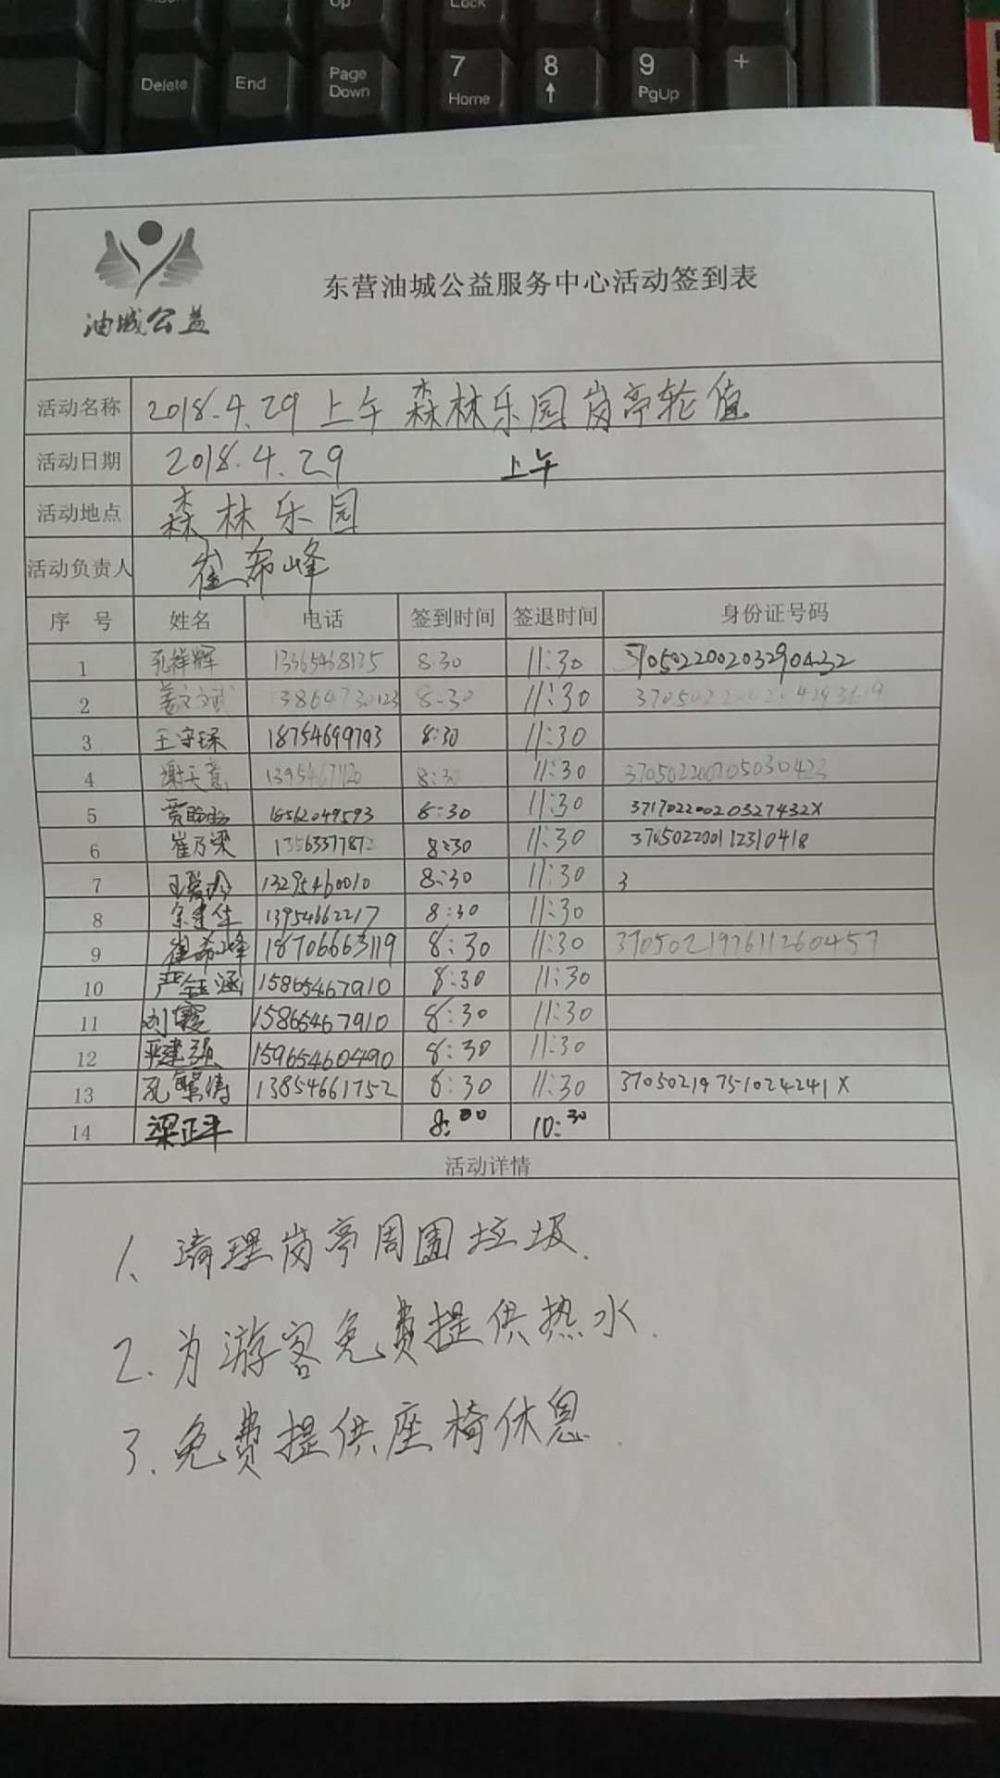 Delete End Page Down 7 Home 8 ↑ 9 PgUp +
油城公益
东营油城公益服务中心活动签到表
活动名称 2018.4.29 上午 森林乐园岗亭轮值
活动日期 2018.4.29 上午
活动地点 森林乐园
活动负责人 崔希峰
序号 姓名 电话 签到时间 签退时间 身份证号码
1 孔祥辉 8:30 11:30 370502200203290432
2 8:30 11:30
3 18754699793 8:30 11:30
4 谢天意 8:30 11:30
5 18562049593 8:30 11:30 37170220020327432X
6 崔乃梁 8:30 11:30 370502200112310418
7 13295460010 8:30 11:30 3
8 13954662217 8:30 11:30
9 崔希峰 18706663119 8:30 11:30 370502197611260457
10 严钰涵 15865467910 8:30 11:30
11 刘霞 15865467910 8:30 11:30
12 15965460490 8:30 11:30
13 13854661752 8:30 11:30 37050219751024241X
14 梁正平 8:00 10:30
活动详情
1、清理岗亭周围垃圾.
2.为游客免费提供热水.
3.免费提供座椅休息.